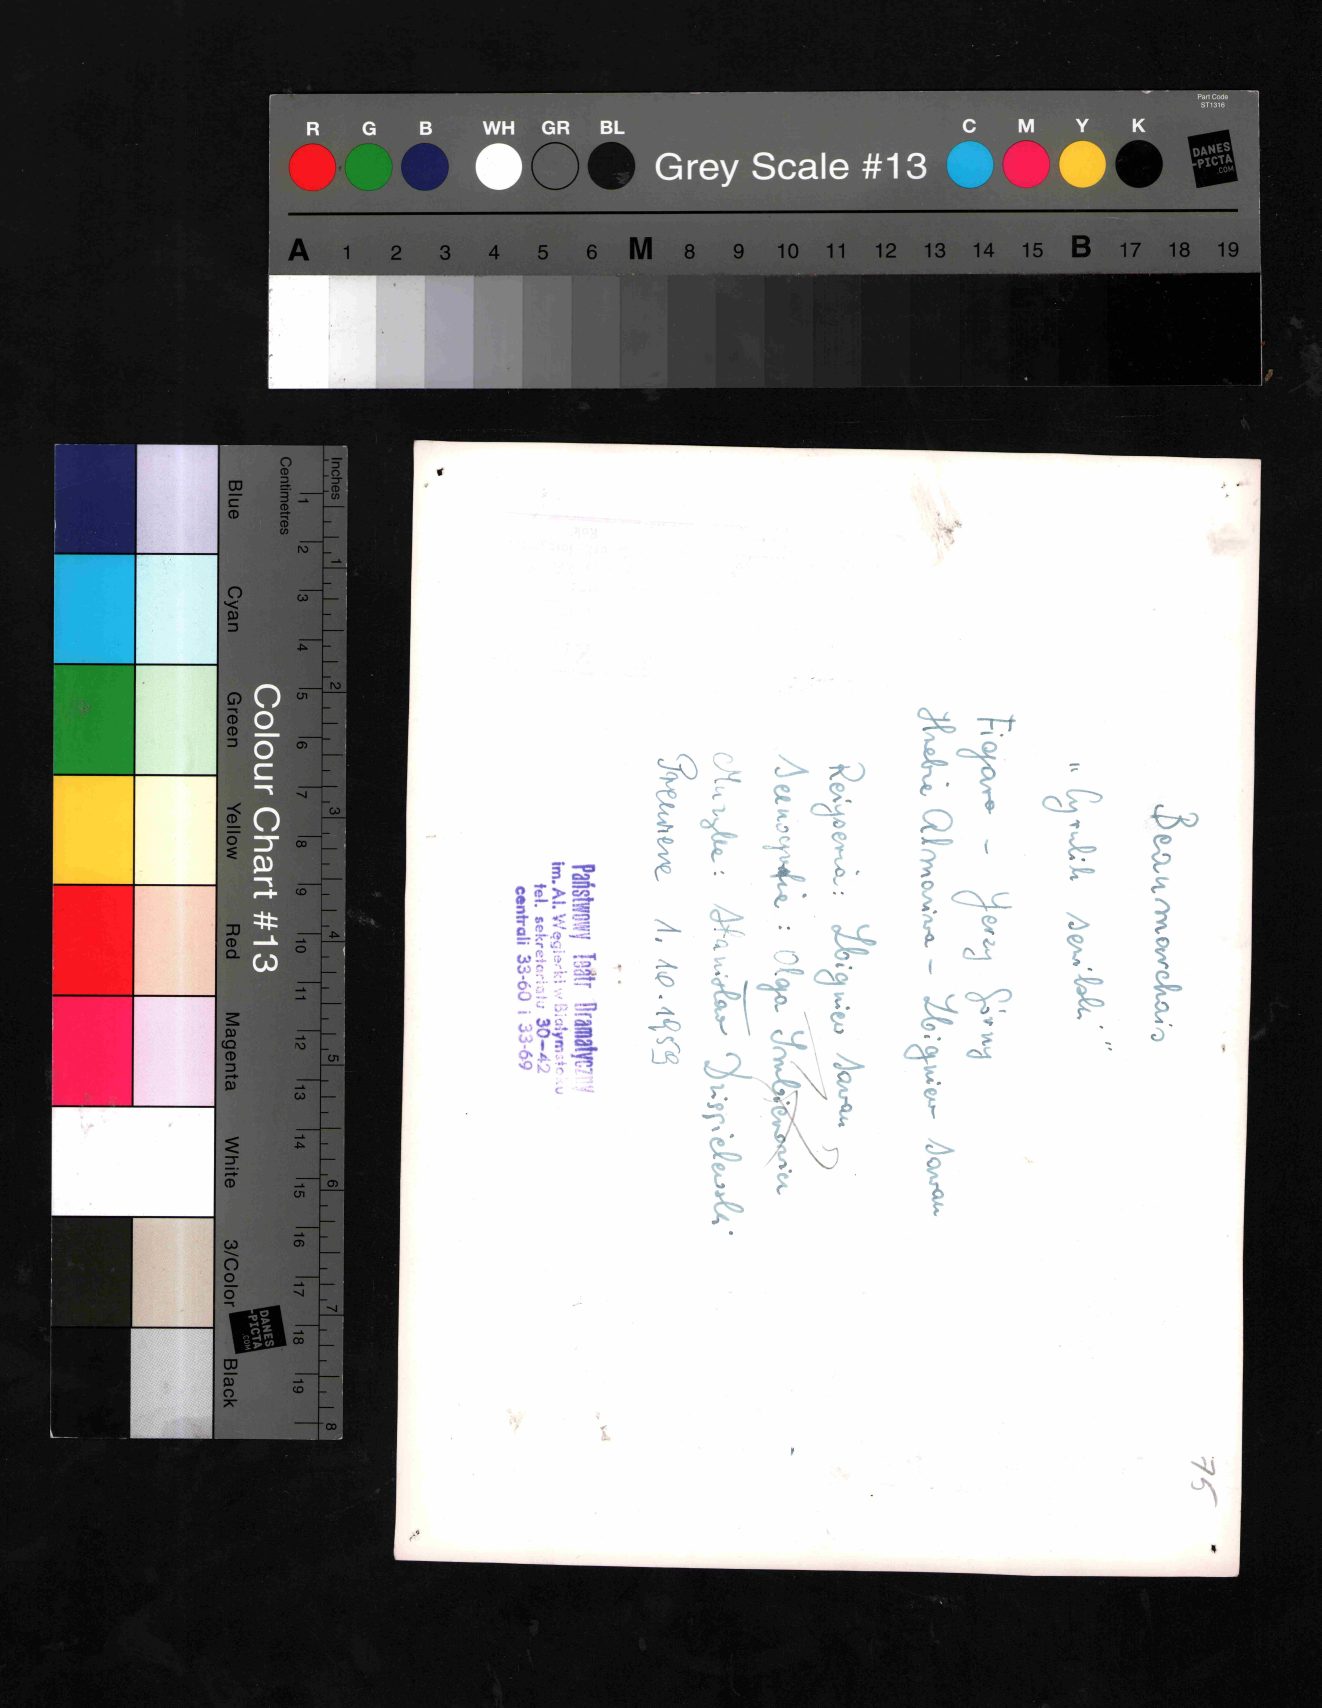 Part Code
ST1316
R G B WH GR BL Grey Scale #13 C M Y K
DANES
-PICTA
.COM
A 1 2 3 4 5 6 M 8 9 10 11 12 13 14 15 B 17 18 19
Inches
1 2 3 4 5 6 7 8
Centimetres
1 2 3 4 5 6 7 8 9 10 11 12 13 14 15 16 17 18 19
Colour Chart #13
DANES
-PICTA
.COM
Blue Cyan Green Yellow Red Magenta White 3/Color Black
75
Beaumarchais
"Cyrulik sewilski"
Figaro - Jerzy Górny
Hrabia Almaviva - Zbigniew Sawan
Reżyseria: Zbigniew Sawan
Scenografia: Olga
Muzyka: Stanisław
Premiera 1.10.1959
Państwowy Teatr Dramatyczny
im. Al. Węgierki w Białymstoku
tel. sekretariatu 30-42
centrali 33-60 i 33-69